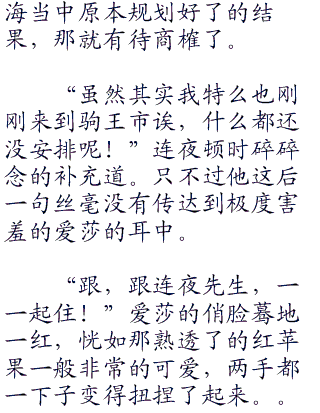 海当中原本规划好了的结
果，那就有待商榷了。
“虽然其实我特么也刚
刚来到驹王市诶，什么都还
没安排呢！”连夜顿时碎碎
念的补充道。只不过他这后
一句丝毫没有传达到极度害
羞的爱莎的耳中。
“跟，跟连夜先生，一
一起住！”爱莎的俏脸蓦地
一红，恍如那熟透了的红苹
果一般非常的可爱，两手都
一下子变得扭捏了起来。。